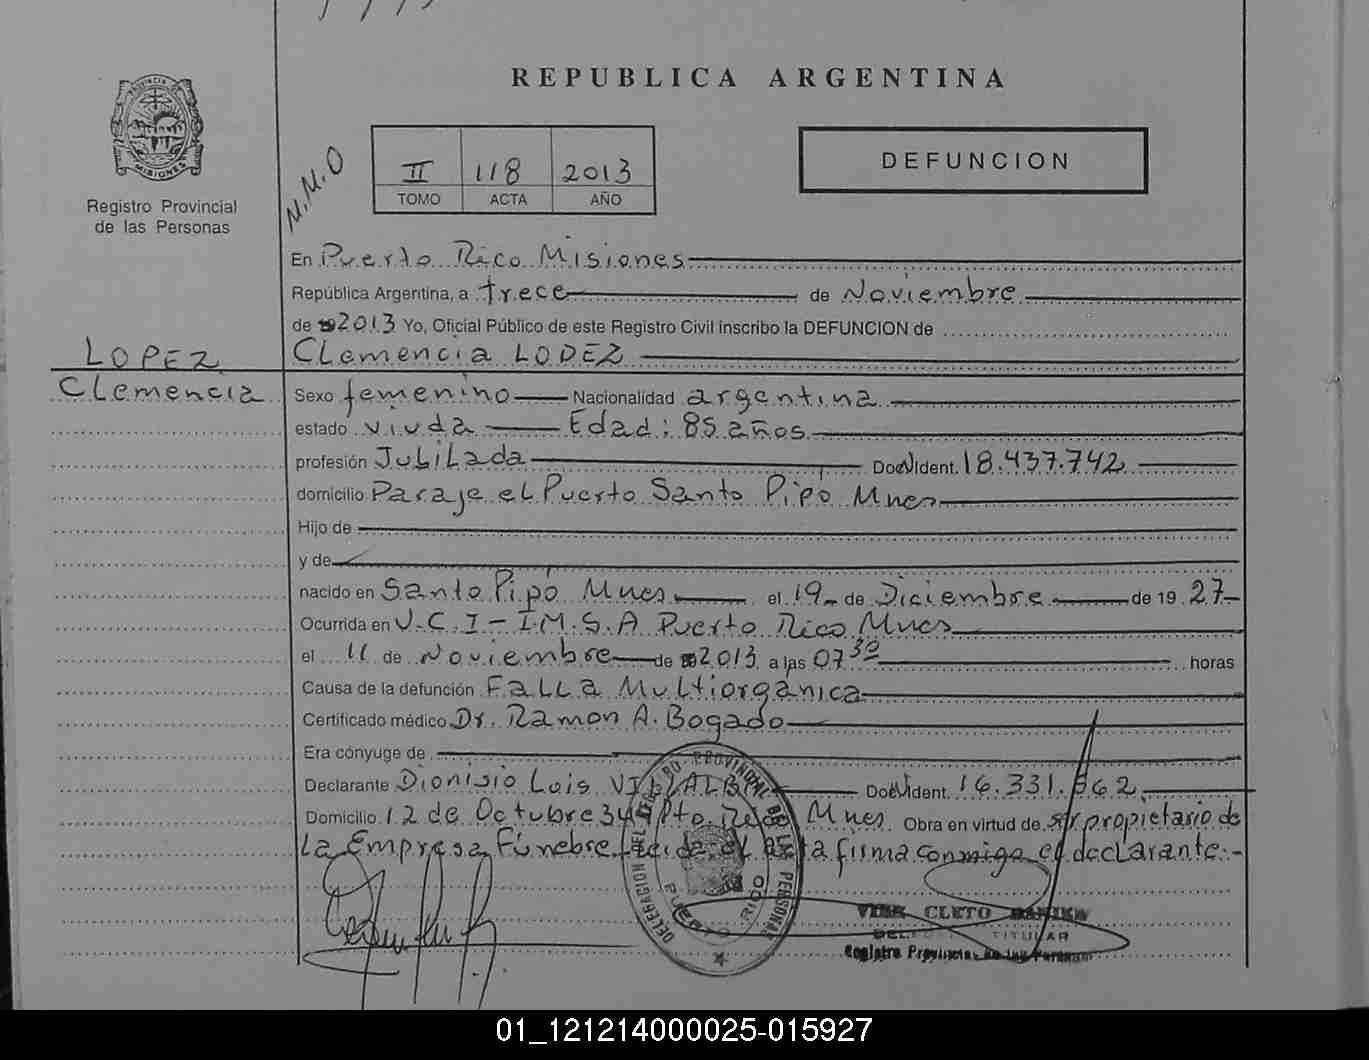 REPUBLICA ARGENTINA
PROVINCIA DE
MISIONES
Registro Provincial
de las Personas
M.M.O
II 118 2013
TOMO ACTA AÑO
DEFUNCION
En Puerto Rico Misiones
República Argentina, a trece de Noviembre
de 2013 Yo, Oficial Público de este Registro Civil inscribo la DEFUNCION de
LOPEZ
Clemencia
Clemencia LOPEZ
Sexo femenino Nacionalidad argentina
estado viuda Edad: 85 años
profesión Jubilada Doc Ident. 18.437.742
domicilio Paraje el Puerto Santo Pipó Mnes
Hijo de
y de
nacido en Santo Pipó Mnes el 19 de Diciembre de 19 27
Ocurrida en U.C.I - I.M.S.A Puerto Rico Mnes
el 11 de Noviembre de 2013 a las 07 30 horas
Causa de la defunción Falla Multiorgánica
Certificado médico Dr. Ramon A. Bogado
Era cónyuge de
Declarante Dionisio Luis VILLALBA Doc Ident. 16.331.562
Domicilio 12 de Octubre 34 Pto. Rico Mnes Obra en virtud de ser propietario de
La Empresa Fúnebre Leída el acta firma conmigo el declarante.-
DELEGACION DEL REGISTRO PROVINCIAL DE LAS PERSONAS
PUERTO RICO
CLETO
TITULAR
Registro Provincial de las Personas
01_121214000025-015927